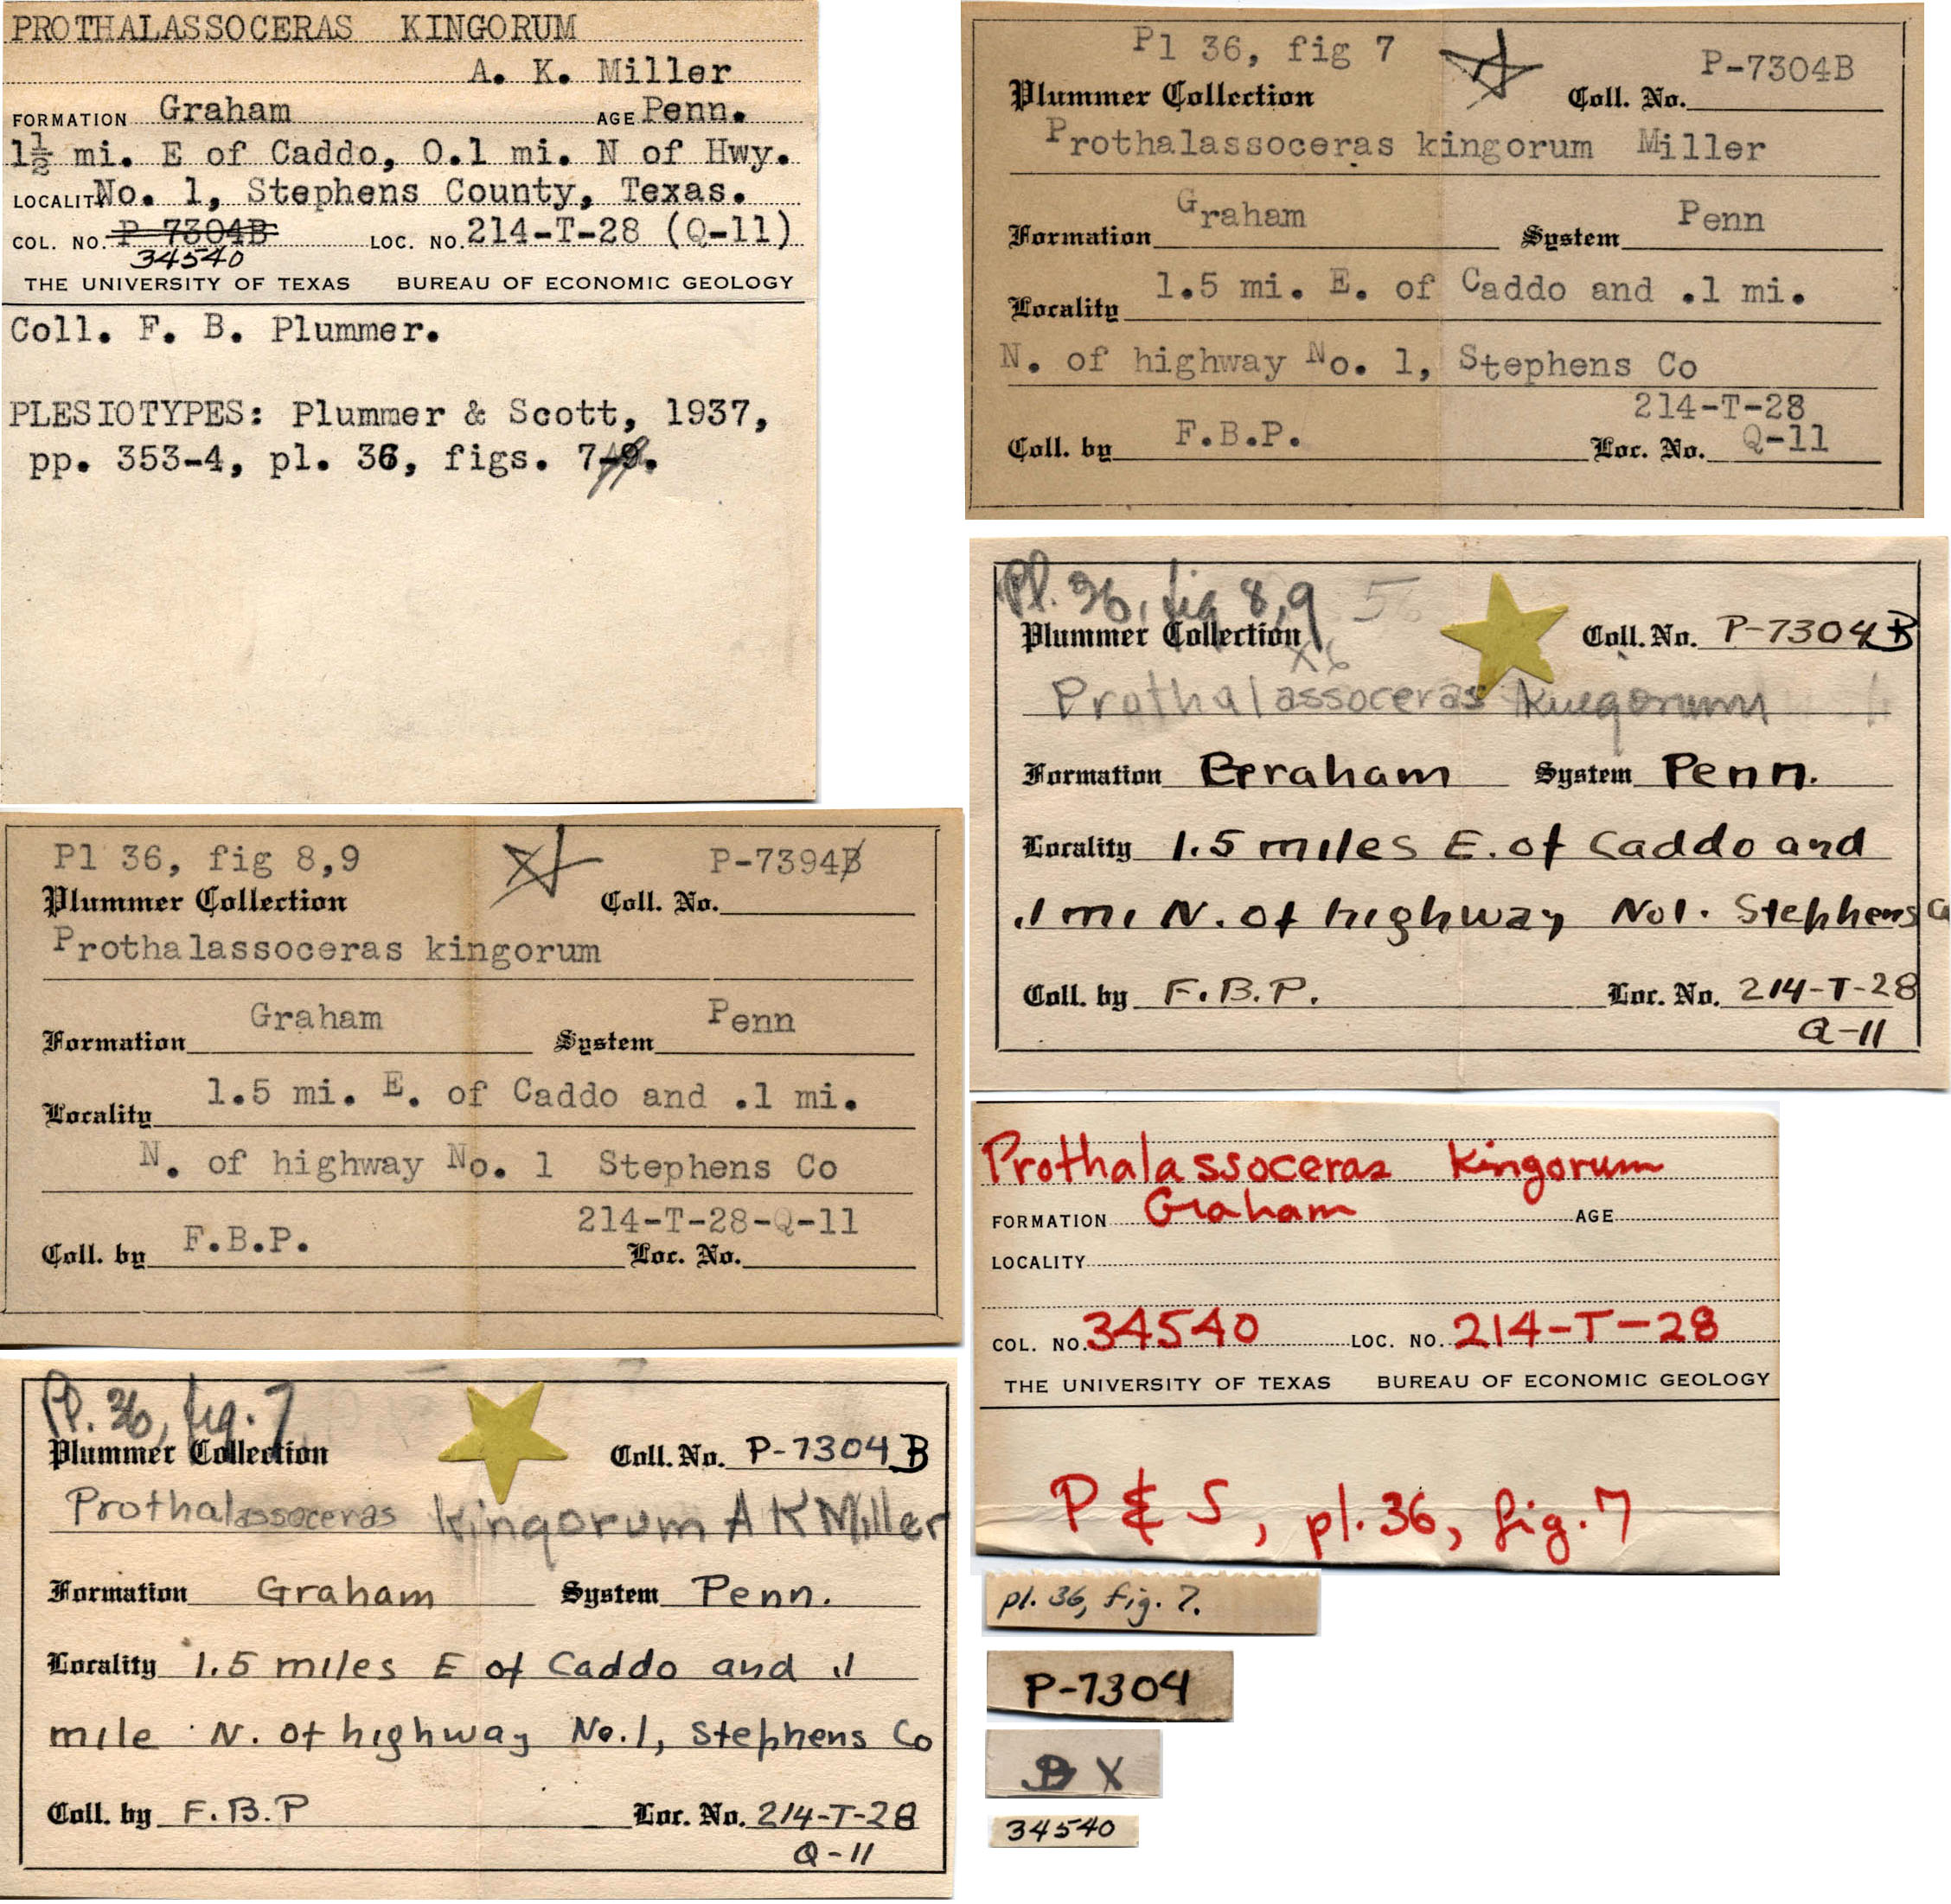 PROTHALASSOCERAS KINGORUM
A. K. Miller
FORMATION Graham AGE Penn.
1½ mi. E of Caddo, 0.1 mi. N of Hwy.
LOCALITY No. 1, Stephens County, Texas.
COL. NO. P 7304B LOC. NO. 214-T-28 (Q-11)
34540
THE UNIVERSITY OF TEXAS BUREAU OF ECONOMIC GEOLOGY
Coll. F. B. Plummer.
PLESIOTYPES: Plummer & Scott, 1937,
pp. 353-4, pl. 36, figs. 7-9.
Pl 36, fig 7 P-7304B
Plummer Collection Coll. No.
Prothalassoceras kingorum Miller
Graham Penn
Formation System
1.5 mi. E. of Caddo and .1 mi.
Locality
N. of highway No. 1, Stephens Co
214-T-28
Coll. by F.B.P. Loc. No. Q-11
Pl. 36, fig 8,9 56
Plummer Collection Coll. No. P-7304B
x6
Prothalassoceras kingorum
Formation Graham System Penn.
Locality 1.5 miles E. of Caddo and
.1 mi N. of highway No1. Stephens Co
Coll. by F.B.P. Loc. No. 214-T-28
Q-11
Pl 36, fig 8,9 P-7394B
Plummer Collection Coll. No.
Prothalassoceras kingorum
Graham Penn
Formation System
1.5 mi. E. of Caddo and .1 mi.
Locality
N. of highway No. 1 Stephens Co
214-T-28-Q-11
Coll. by F.B.P. Loc. No.
Prothalassoceras Kingorum
FORMATION Graham AGE
LOCALITY
COL. NO. 34540 LOC. NO. 214-T-28
THE UNIVERSITY OF TEXAS BUREAU OF ECONOMIC GEOLOGY
P & S, pl. 36, fig. 7
Pl. 36, fig. 7
Plummer Collection Coll. No. P-7304B
Prothalassoceras kingorum A K Miller
Formation Graham System Penn.
Locality 1.5 miles E of Caddo and .1
mile N. of highway No. 1, Stephens Co
Coll. by F.B.P Loc. No. 214-T-28
Q-11
pl. 36, fig. 7.
P-7304
B X
34540